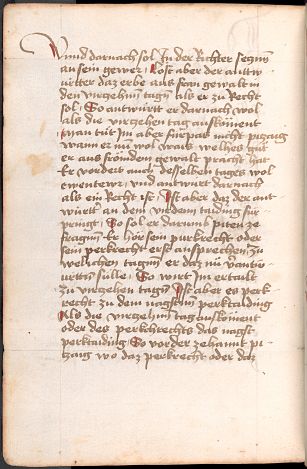 Unnd darnach sol In der Richter seczn̄
an sein gewer / Lost aber der antw-
ürtter daz erbe aus fran gewalt in
den virczehn̄ tagn̄ als er zu Recht
sol / So antwürtt er darnach wol
als die virczehen tag auskoment
man tüt Im aber fürpas nicht
wann er nü wol wais welhes guͤt
er aus frömdem gewalt pracht hat
Er vordert auch desselben tages wol
und antwurt darnach
als ein Recht ist / Ist aber daz der ant-
württer an dem virdem taiding für
pringt / So sol er darumb piten ze
fragn̄n Er hör sein purkrecht oder
sein perkrecht erst ansprechen / zu
welichen tagn̄n er daz nü verantw-
urttn̄ sülle / So wirt Im ertailt
zu virczehen tagn̄ / Ist aber es perk
recht zu dem nagstn̄n perktaiding
Als die virczehn̄ tag auskoment
oder des perkchrechts das nagst
perktaiding / So vorder zehannt
wo daz perkrecht oder daz